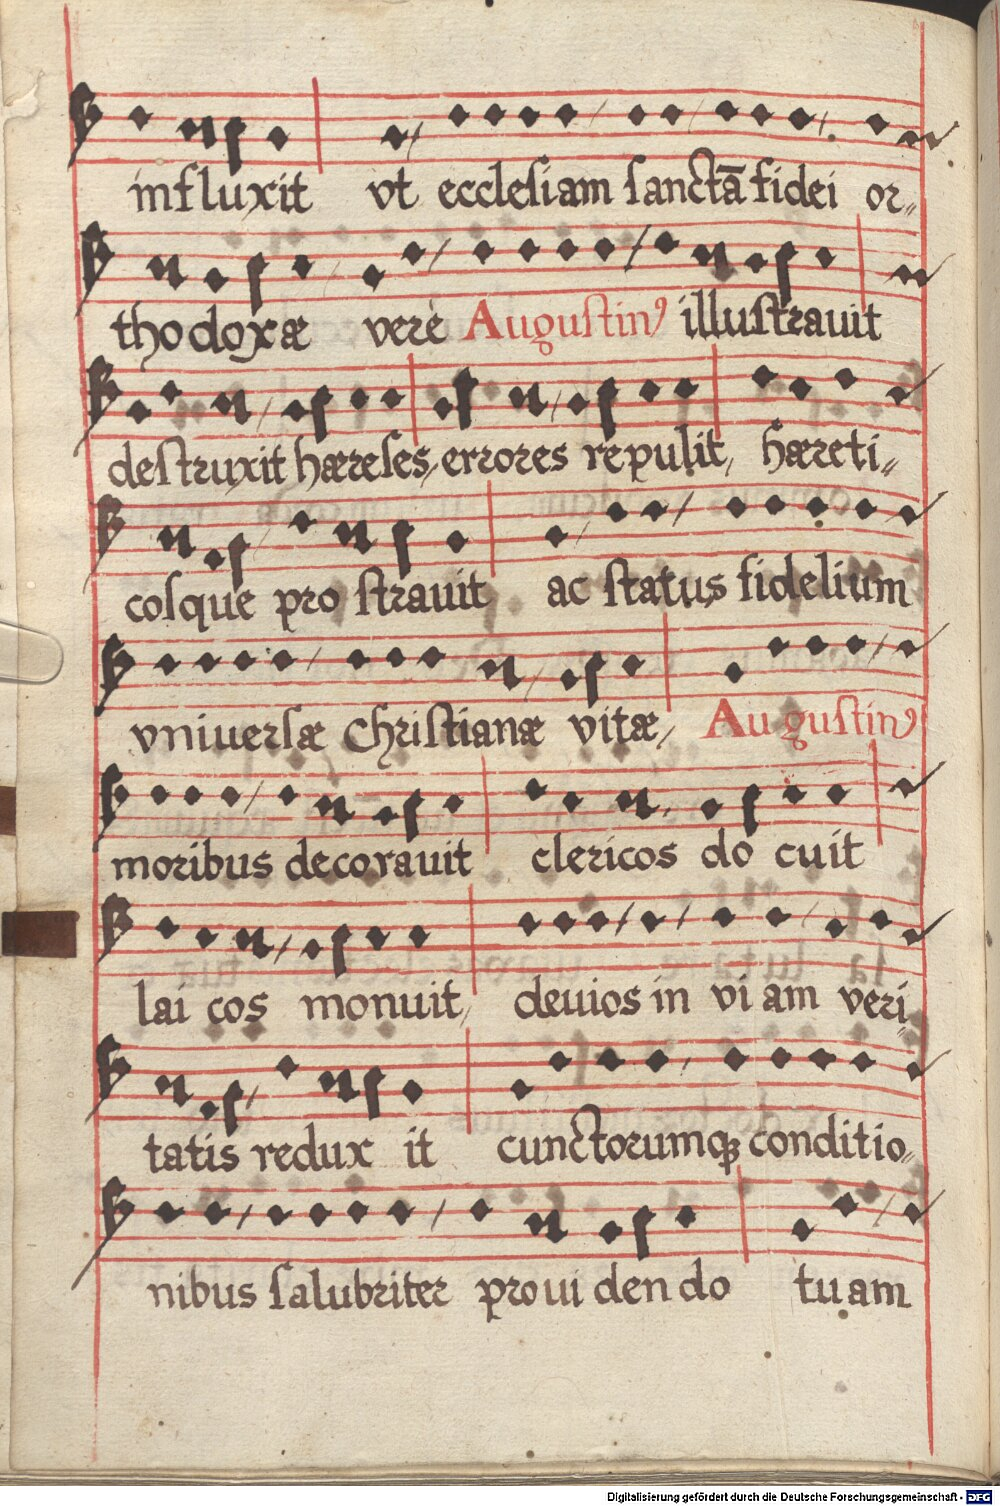 influxit vt ecclesiam sanctā fidei or„
thodoxæ verè Augustinꝰ illustrauit
destruxit hæreses, errores repulit, hæreti„
cosque prostrauit ac status fidelium
vniuersæ christianæ vitæ, Augustinꝰ
moribus decorauit clericos do cuit
lai cos monuit, deuios in vi am veri„
tatis redux it cunctorumqꝫ conditio„
nibus salubriter proui den do tuam
Digitalisierung gefördert durch die Deutsche Forschungsgemeinschaft - DFG